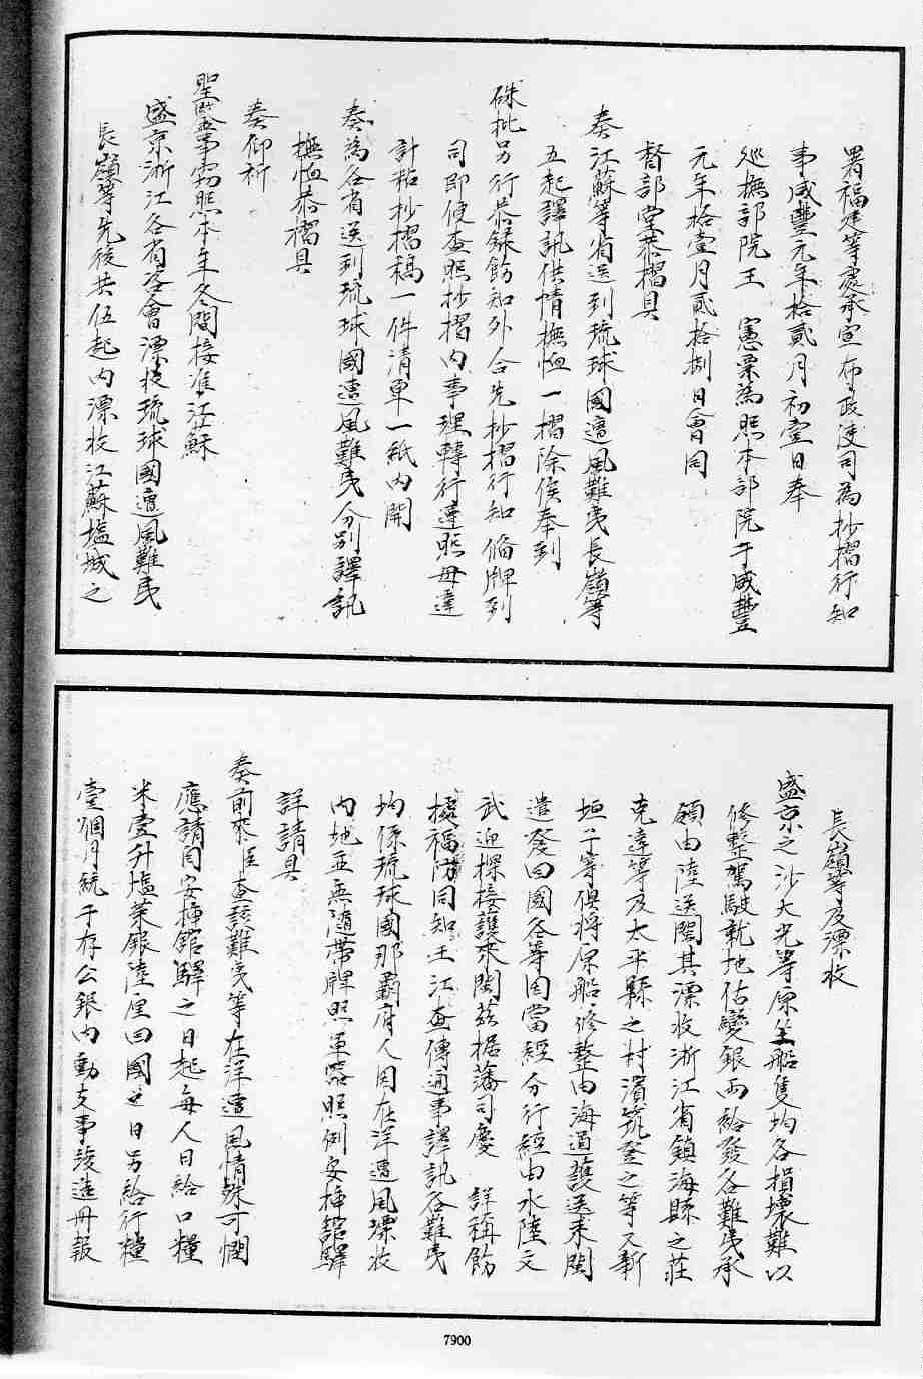 署福建等處承宣布政使司為抄摺行知
事咸豐元年拾貳月初壹日奉
巡撫部院王 憲票為照本部院于咸豐
元年拾壹月貳拾捌日會同
督部堂恭摺具
奏江蘇等省送到琉球國遭風難夷長嶺等
五起譯訊供情撫恤一摺除俟奉到
硃批另行恭録飭知外合先抄摺行知備牌到
司即便查照抄摺內事理轉行遵照毋違
計粘抄摺稿一件清單一紙內開
奏為各省送到琉球國遭風難夷分別譯訊
撫恤恭摺具
奏仰祈
聖鑒事竊照本年冬間接准江蘇
盛京浙江各省咨會漂收琉球國遭風難夷
長嶺等先後共伍起內漂收江蘇塩城之
長嶺等及漂收
盛京之沙大光等原坐船隻均各損壞難以
修整駕駛就地估變銀兩給發各難夷承
領由陸送閩其漂收浙江省鎮海縣之莊
克達等及太平縣之村濱筑登之等又新
垣子等俱將原船修整由海道護送來閩
遣發回國各等因當經分行經由水陸文
武迎探接護來閩茲据藩司慶 詳稱飭
據福防同知王江查傳通事譯訊各難夷
均係琉球國那霸府人因在洋遭風漂收
內地並無隨帶牌照軍器照例安插舘驛
詳請具
奏前來臣查該難夷等在洋遭風情殊可憫
應請自安插舘驛之日起每人日給口糧
米壹升塩菜銀陸厘回國之日另給行糧
壹個月統于存公銀內動支事竣造冊報
7900